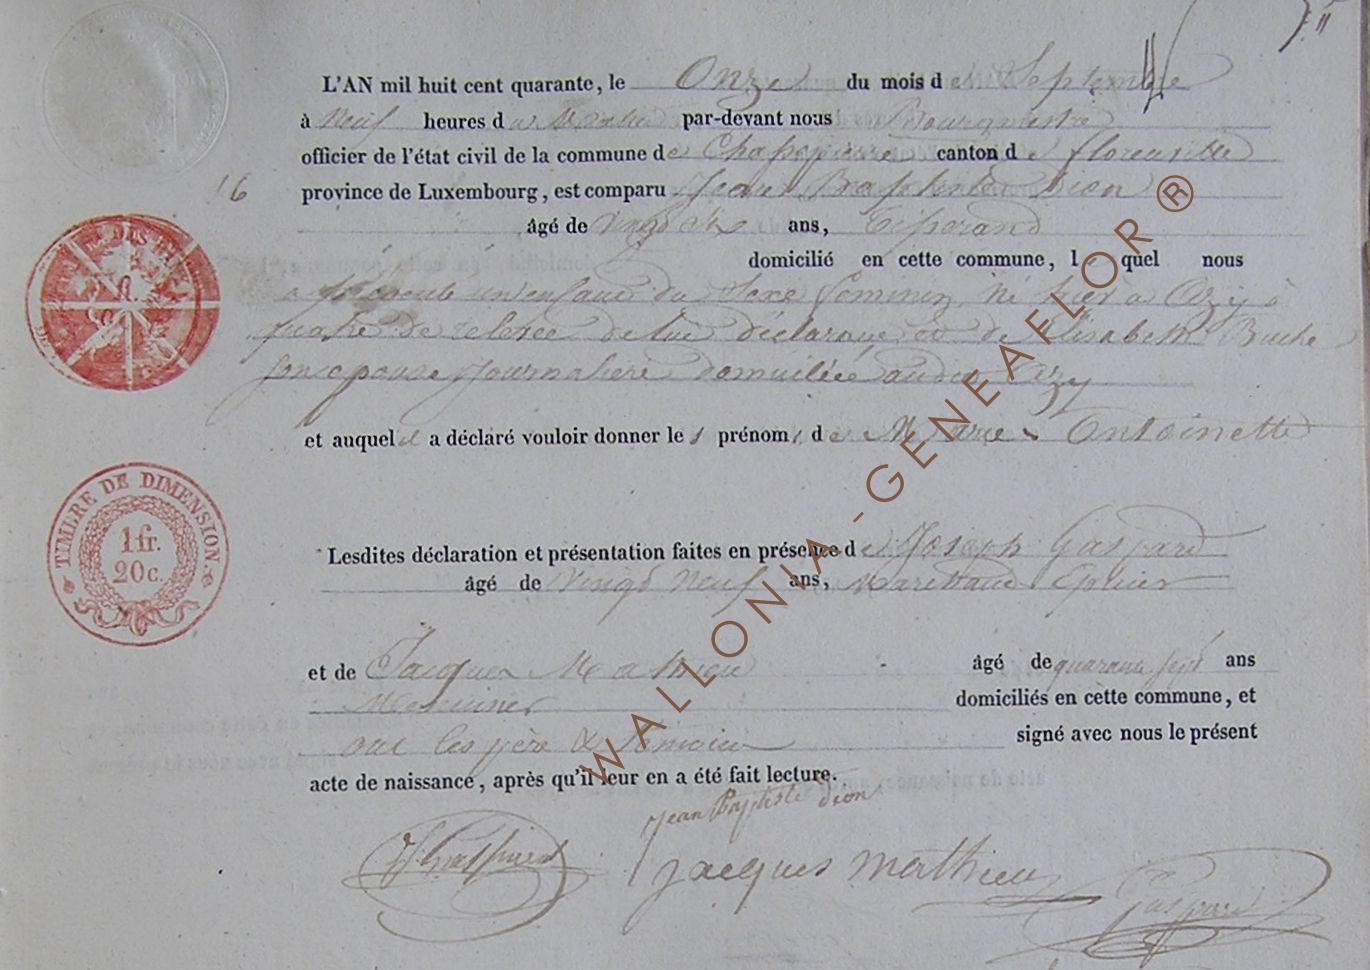 11
L'AN mil huit cent quarante, le Onze du mois de Septembre
à Neuf heures du Matin par-devant nous Bourgmestre
officier de l'état civil de la commune de canton de florenville
16
province de Luxembourg, est comparu Jean Baptiste Dion
âgé de vingt six ans, Tisserand
domicilié en cette commune, lequel nous
a présenté un enfant du Sexe féminin, Né hier à Izy à
quatre de relevée de lui déclarant et de Elisabeth Buche
son épouse journalière domiciliée audit Izy
et auquel il a déclaré vouloir donner les prénoms de Marie Antoinette
TIMBRE DE DIMENSION.
1 fr.
20 c.
Lesdites déclaration et présentation faites en présence de Joseph Gaspard
âgé de vingt Neuf ans, Marechand Epicier
et de Jacques Mathieu âgé de quarante sept ans
Menuisier domiciliés en cette commune, et
ont les père & témoin signé avec nous le présent
acte de naissance, après qu'il leur en a été fait lecture.
Jean Baptiste Dion
Jacques Mathieu
Gaspard
WALLONIA - GENEAFLOR ®